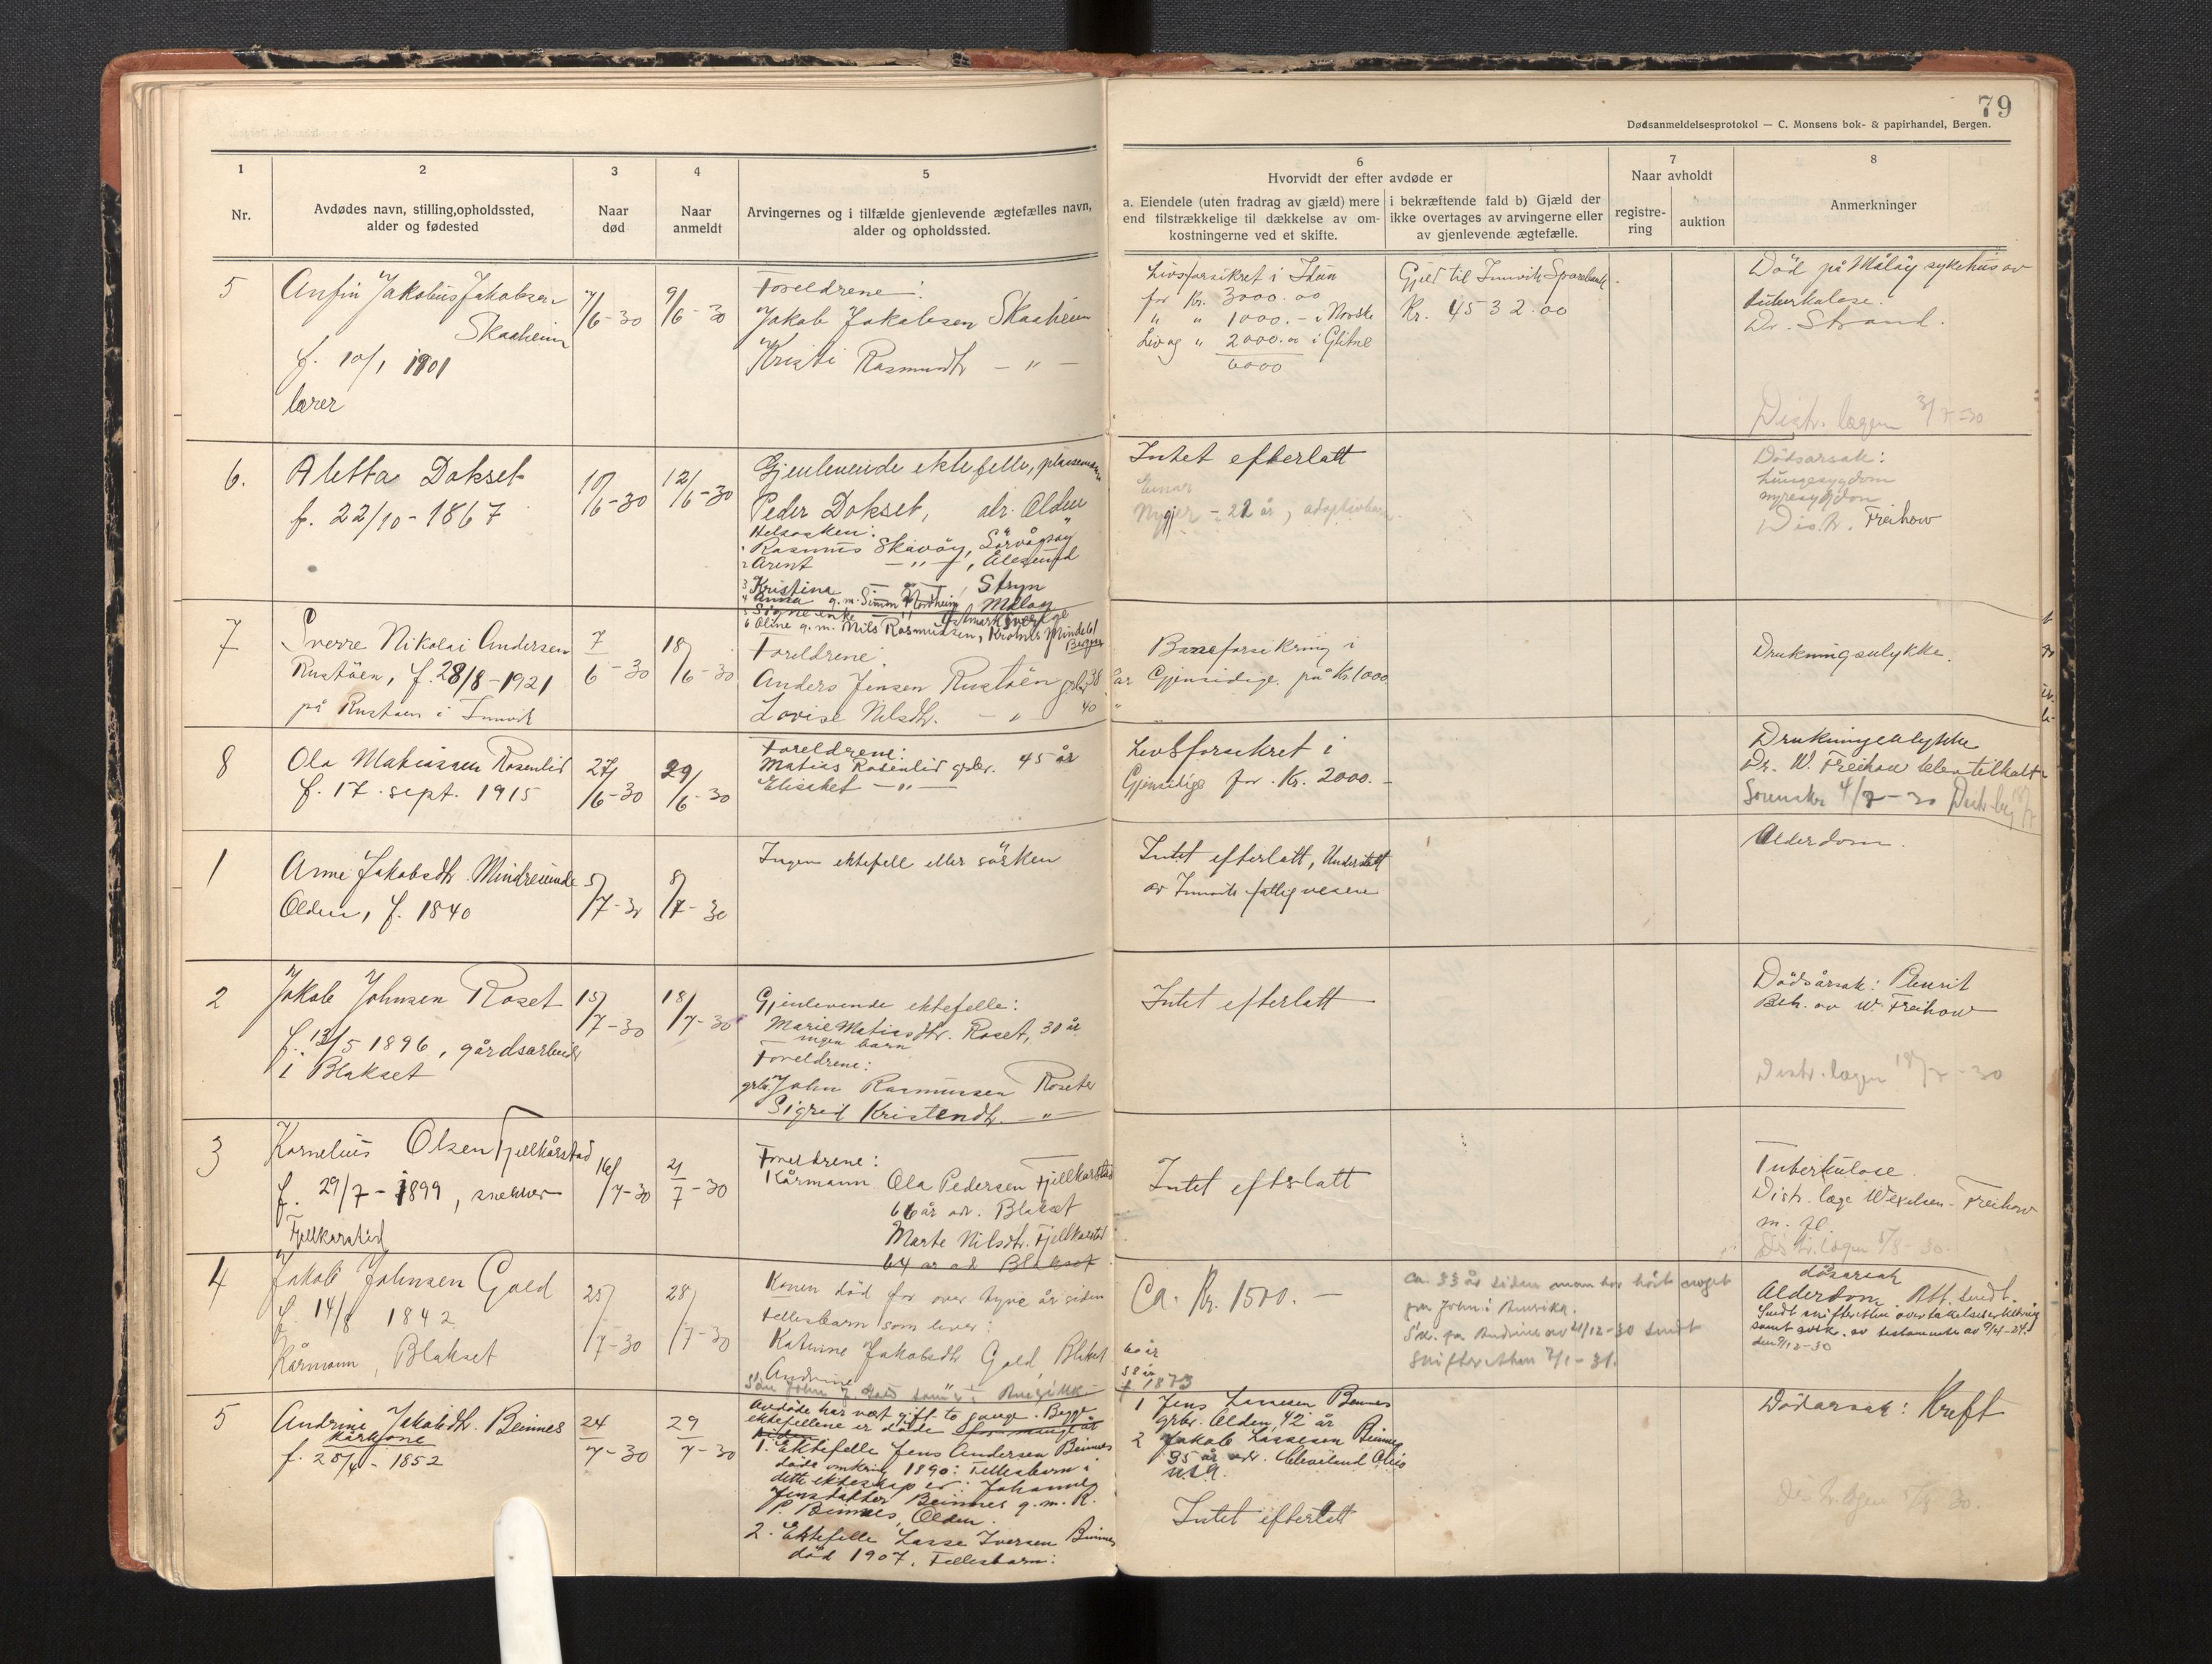 79
Dødsanmeldelsesprotokol — C. Monsens bok- & papirhandel, Bergen.
1
Nr.
2
Avdødes navn, stilling, opholdssted,
alder og fødested
3
Naar
død
4
Naar
anmeldt
5
Arvingernes og i tilfælde gjenlevende ægtefælles navn,
alder og opholdssted.
6
Hvorvidt der efter avdøde er
a. Eiendele (uten fradrag av gjæld) mere
end tilstrækkelige til dækkelse av om-
kostningerne ved et skifte.
i bekræftende fald b) Gjæld der
ikke overtages av arvingerne eller
av gjenlevende ægtefælle.
7
Naar avholdt
registre-
ring
auktion
8
Anmerkninger
5
Anfin Jakobus Jakobsen
Skaaheim
f. 10/1 1901
lærer
7/6-30
9/6-30
Foreldrene:
Jakob Jakobsen Skaaheim
Kristi Rasmusdtr — " —
Livsforsikret i Idun
for Kr. 3000.00
" " 1000.- i Norske
Liv og " 2000.00 i Glitne
6000
Gjeld til Innvik Sparebank
Kr. 4532.00
Död på Måløy sykehus av
tuberkulose.
Dr. Strand.
Distr. lægen 3/7-30
6.
Aletta Dokset
f. 22/10-1867
10/6-30
12/6-30
Gjenlevende ektefelle, plassmann
Peder Dokset, adr. Olden
Helsøsken:
1 Rasmus Skavöy, Sörvågsöy
2 Arent — " —, Ålesund
3 Kristina — " —, Stryn
4 Anna g.m. Simon Nordheim, Måløy
5 Signe enke
6 Oline g.m. Nils Rasmussen, Kronus Minde 61
Bergen
Intet efterlatt
Einar
Nygjer - 22 år, adoptivbarn
Dödsarsak:
Lungesygdom
nyresygdom
Distr. Freihow
7
Sverre Nikolai Andersen
Rustöen, f. 28/8-1921
på Rustöen i Innvik
7/6-30
18/6-30
Foreldrene:
Anders Jensen Rustöen grbr 38 år
Lovise Nilsdtr. — " — 40 "
Barneforsikring i
Gjensidige på Kr 1000
Drukningsulykke.
8
Ola Matiassen Rosenlid
f. 17. sept. 1915
27/6-30
29/6-30
Foreldrene:
Matias Rosenlid gbr. 45 år
Elisabet — " —
Livsforsikret i
Gjensidige for Kr. 2000.-
Drukningsulykke
Dr. W. Freihow blev tilkalt
Sorenskr 4/7-30
1
Anne Jakobsdtr. Mindresunde
Olden, f. 1840
5/7-30
8/7-30
Ingen ektefell eller søsken
Intet efterlatt, Understøtt
av Innvik fattigvesen
Alderdom.
2
Jakob Johnsen Roset
f. 13/5 1896, gårdsarbeider
i Blakset
15/7-30
18/7-30
Gjenlevende ektefelle:
Marie Matiasdtr. Roset, 30 år
ingen barn
Foreldrene:
grbr. John Rasmussen Roset
Sigrid Kristendtr. — " —
Intet efterlatt
Dödsårsak: Pleurit
Beh. av W. Freihow
Distr. lægen 18/7-30
3
Kornelius Olsen Fjellkårstad
f. 29/7-1899, snekker
Fjellkårstad
16/7-30
21/7-30
Foreldrene:
Kårmann Ola Pedersen Fjellkårstad
66 år adr. Blakset
Marte Nilsdtr. Fjellkårstad
64 år ad. Blakset
Intet efterlatt
Tuberkulose.
Distr. læge Wexelsen - Freihow
m. fl.
Distr. lægen 5/8-30.
4
Jakob Johnsen Gald
f. 14/8 1842
Kårmann, Blakset
25/7-30
28/7-30
Konen död for over tyve år siden
Fellesbarn som lever:
Katrine Jakobsdtr Gald, Blakset 60 år
Andrine " 58 år
f 1873
Ca. Kr. 1500.—
Ca. 33 år siden man har hört noget
fra John i Amerika.
Sk. fra Andrine av 21/12-30 sendt
Skifteretten 7/1-31.
dösarsak
Alderdom. Att. sendt.
Sendt skifteretten overtakelseserklæring
samt avskr. av testamente av 9/4-24.
5
Andrine Jakobdtr. Beinnes
Kårkone
f. 25/4-1852
24/7-30
29/7-30
Avdöde har vært gift to gange. Begge
ektefellene er döde
1. Ektefelle Jens Andersen Beinnes
döde omkring 1890: Fellesbarn i
dette ekteskap er: Johanne
Jensdatter Beinnes g.m. R.
P. Beinnes, Olden.
2. Ektefelle Lasse Iversen Beinnes
död 1907. Fellesbarn:
1 Jens Lassesen Beinnes
grbr. Olden 42 år
2 Jakob Lassesen Beinnes
35 år adr. Cleveland Ohio
USA.
Intet efterlatt
Dödsarsak: Kreft